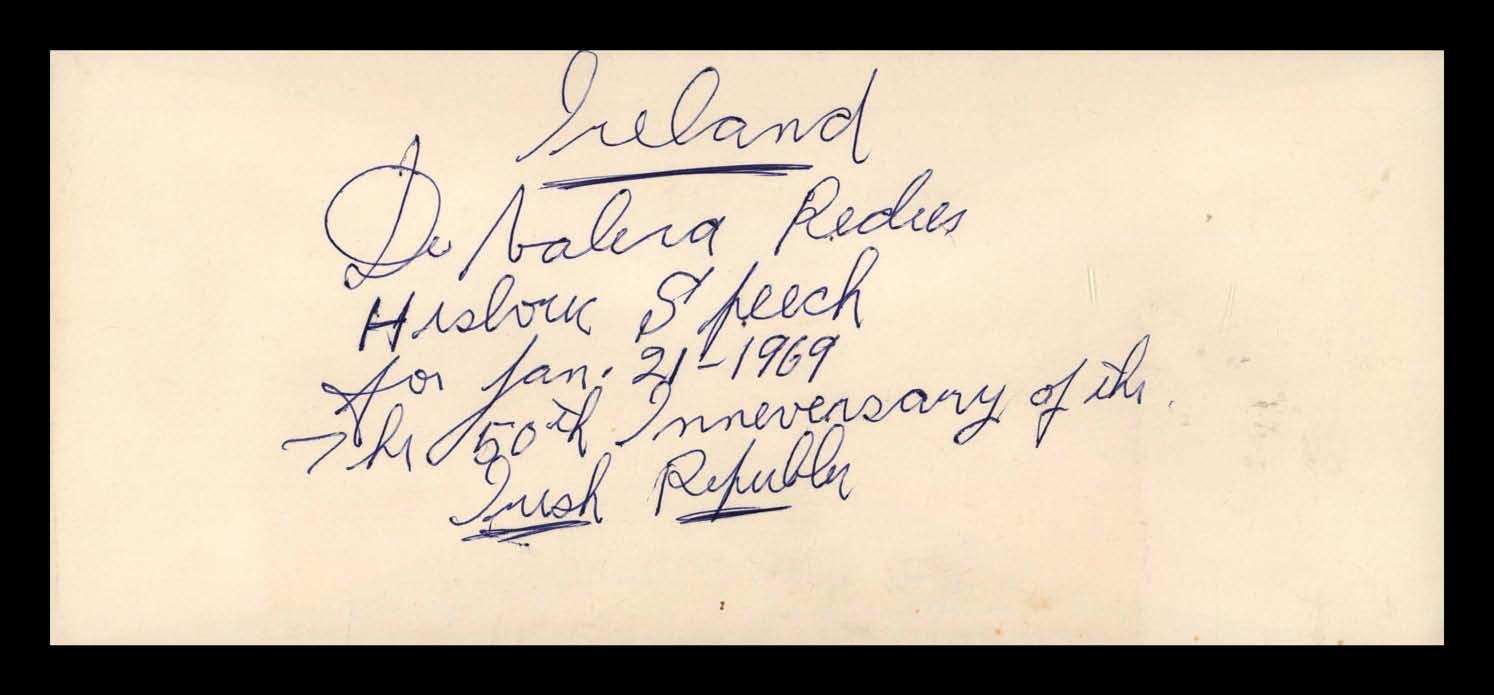 Ireland
De Valera Recites
Historic Speech
for Jan. 21-1969
The 50th Inneversary of the
Irish Republic